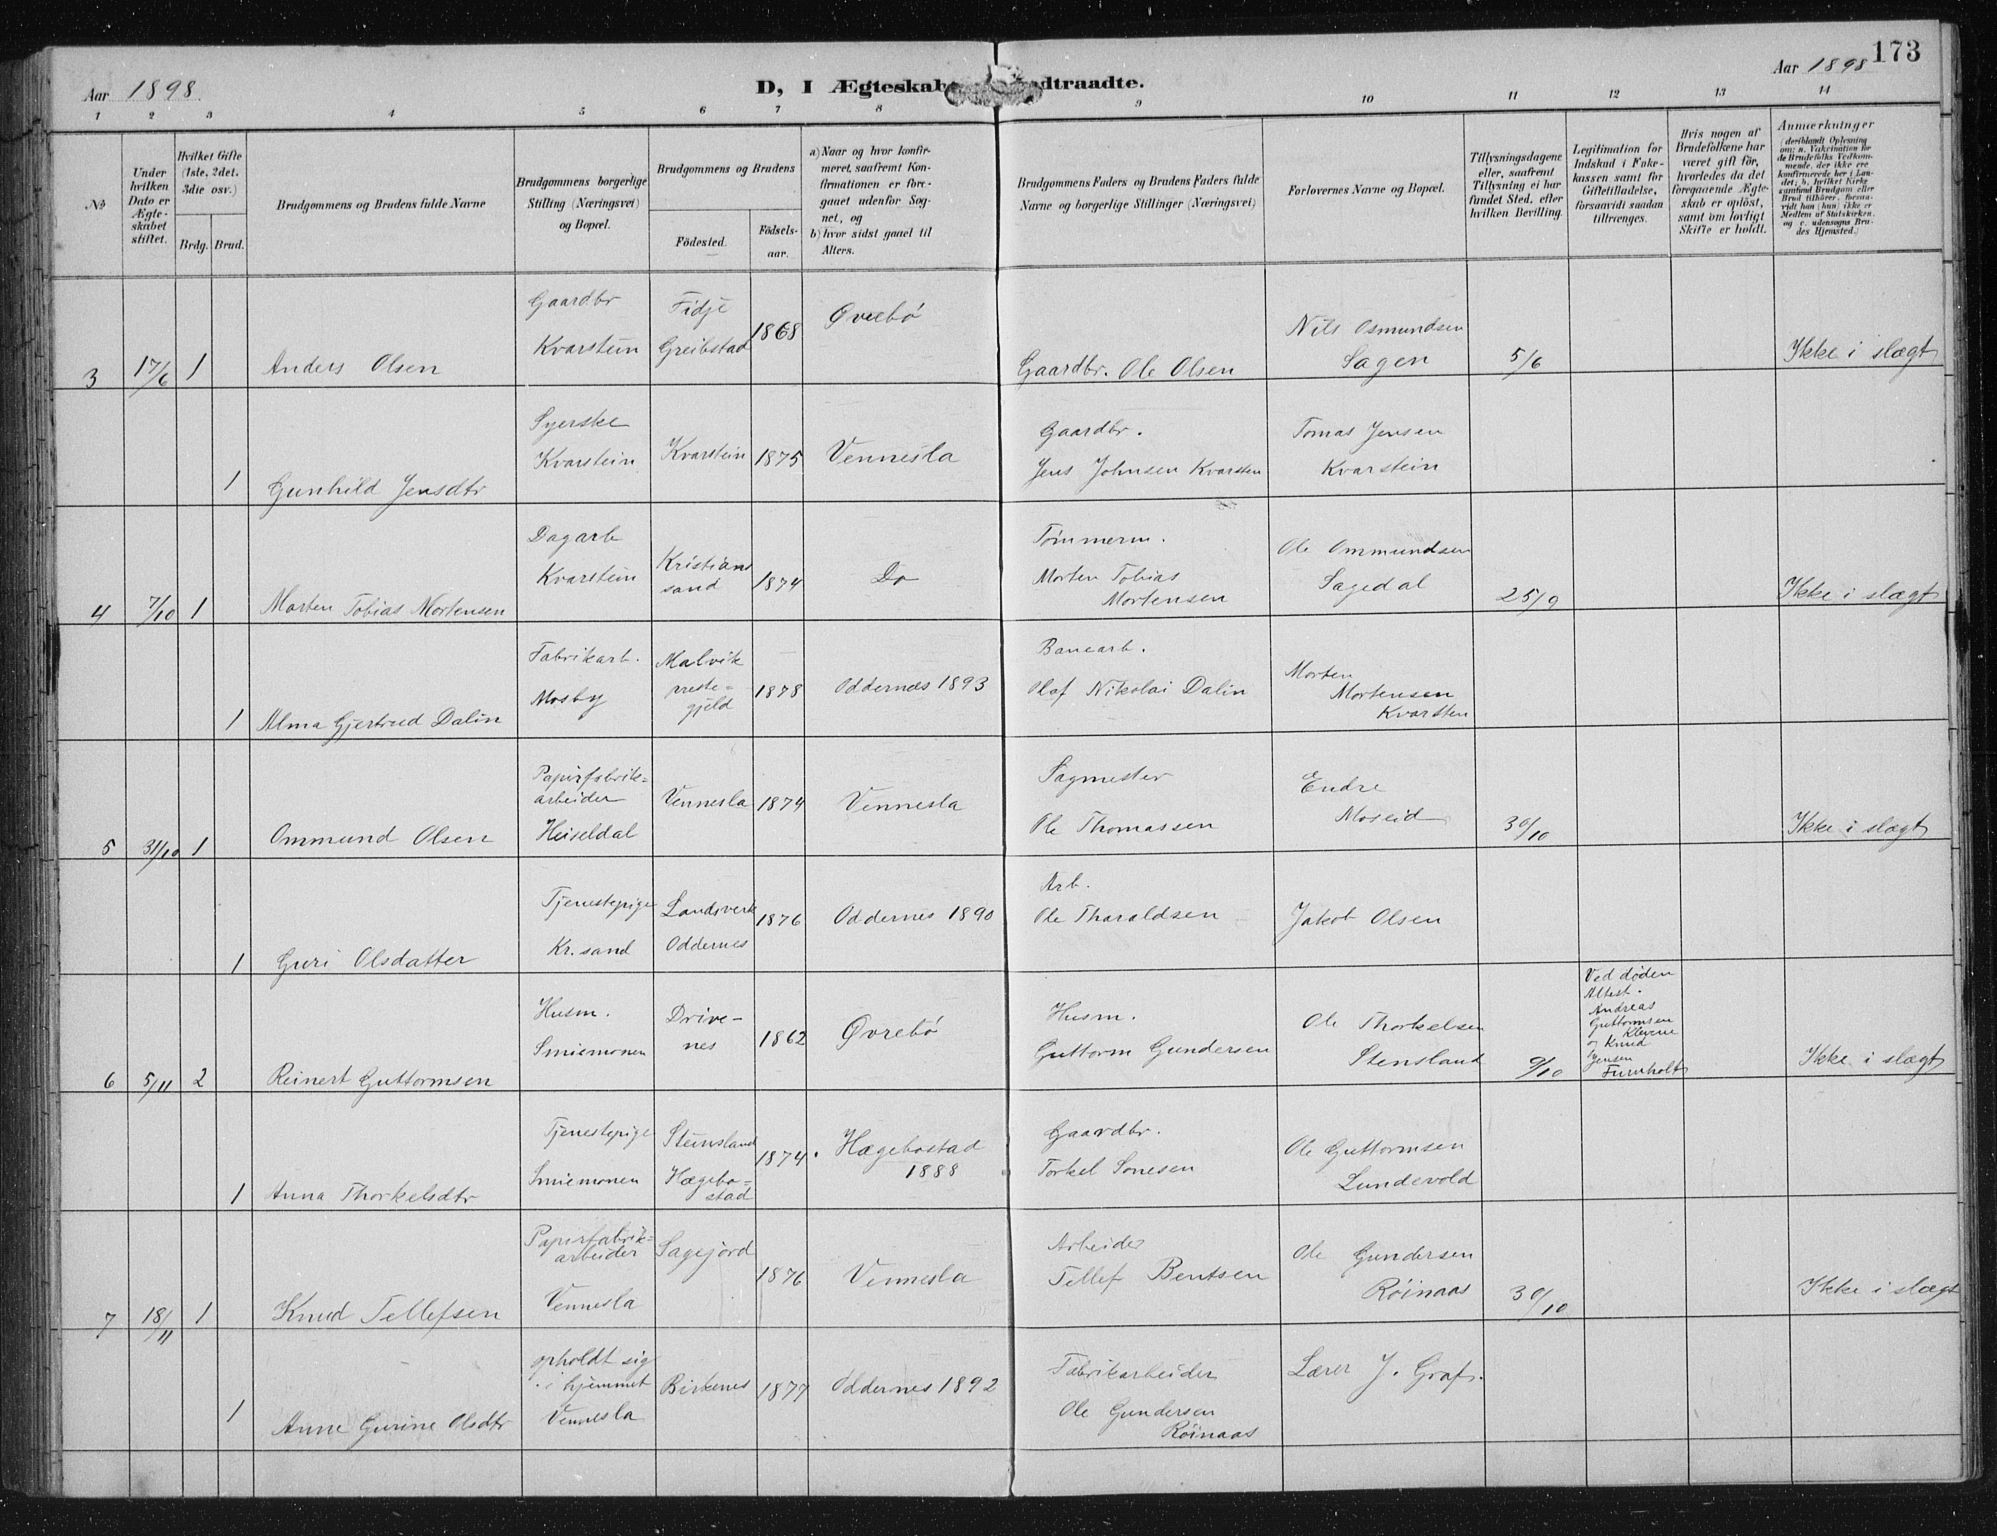 173
Aar 1898.
D, I Ægteskab
dtraadte.
Aar 1898
1 2 3 4 5 6 7 8 9 10 11 12 13 14
№
Under
hvilken
Dato er
Ægte-
skabet
stiftet.
Hvilket Gifte
(1ste, 2det.
3die osv.)
Brdg. Brud.
Brudgommens og Brudens fulde Navne
Brudgommens borgerlige
Stilling (Næringsvei)
og Bopæl.
Brudgommens og Brudens
Födested.
Födsels-
aar.
a) Naar og hvor konfir-
meret, saafremt Kon-
firmationen er fore-
gaaet udenfor Sog-
net, og
b) hvor sidst gaaet til
Alters.
Brudgommens Faders og Brudens Faders fulde
Navne og borgerlige Stillinger (Næringsvei)
Forlovernes Navne og Bopæl.
Tillysningsdagene
eller, saafremt
Tillysning ei har
fundet Sted, efter
hvilken Bevilling.
Legitimation for
Indskud i Enke-
kassen samt for
Giftetilladelse,
forsaavidt saadan
tiltrænges.
Hvis nogen af
Brudefolkene har
været gift för,
hvorledes da det
foregaaende Ægte-
skab er oplöst,
samt om lovligt
Skifte er holdt.
Anmærkninger
(deriblandt Oplysning
om: a. Vakcination for
de Brudefolks Vedkom-
mende, der ikke ere
konfirmerede her i Lan-
det; b. hvilket Kirke-
samfund Brudgom eller
Brud tilhörer, forsaa-
vidt han (hun) ikke er
Medlem af Statskirken,
og c. udensogns Bru-
des Hjemsted.)
3 17/6 1 Anders Olsen
Gaardbr
Kvarstein
Fidje
Greibstad
1868
Øvrebö
Gaardbr. Ole Olsen
Nils Osmundsen
Sagen
5/6
Ikke i slægt
1 Gunhild Jensdtr
Syerske
Kvarstein
Kvarstein
1875
Vennesla
Gaardbr.
Jens Johnsen Kvarsten
Tomas Jensen
Kvarstein
4 7/10 1 Morten Tobias Mortensen
Dagarb
Kvarstein
Kristian
sand
1874
Do
Tömmerm.
Morten Tobias
Mortensen
Ole Ommundsen
Sagedal
25/9
Ikke i slægt
1 Alma Gjertrud Dalin
Fabrikarb.
Mosby
Malvik
preste=
gjeld
1878
Oddernæs 1893
Banearb.
Olaf Nikolai Dalin
Morten
Mortensen
Kvarsten
5 31/10 1 Ommund Olsen
Papirfabrik=
arbeider
Heiseldal
Vennesla
1874
Vennesla
Sagmester
Ole Thomassen
Endre
Moseid
30/10
Ikke i slægt
1 Guri Olsdatter
Tjenestepige
Kr. sand
Landsverk
Oddernes
1876
Oddernes 1890
Arb.
Ole Tharaldsen
Jakob Olsen
6 5/11 2 Reinert Guttormsen
Husm.
Smiemonen
Drive-
nes
1862
Øvrebö
Husm.
Guttorm Gundersen
Ole Thorkelsen
Stensland
9/10
Ved döden
Attest.
Andreas
Guttormsen
Klevene
og Knud
Jensen
Furuholt
Ikke i slægt
1 Anna Thorkelsdtr
Tjenestepige
Smiemonen
Steinsland
Hægebo=
stad
1874.
Hægebostad
1888
Gaardbr.
Torkel Sonesen
Ole Guttormsen
Lundevold
7 18/11 1 Knud Tellefsen
Papirfabrik=
arbeider
Vennesla
Sagejord
1876
Vennesla
Arbeider
Tellef Bentsen
Ole Gundersen
Röinaas
30/10
Ikke i slægt
1 Anne Gurine Olsdtr
opholdt sig
i hjemmet
Vennesla
Birkenes
1877
Oddernes 1892
Fabrikarbeider
Ole Gundersen
Röinaas
Lærer J. Graf.